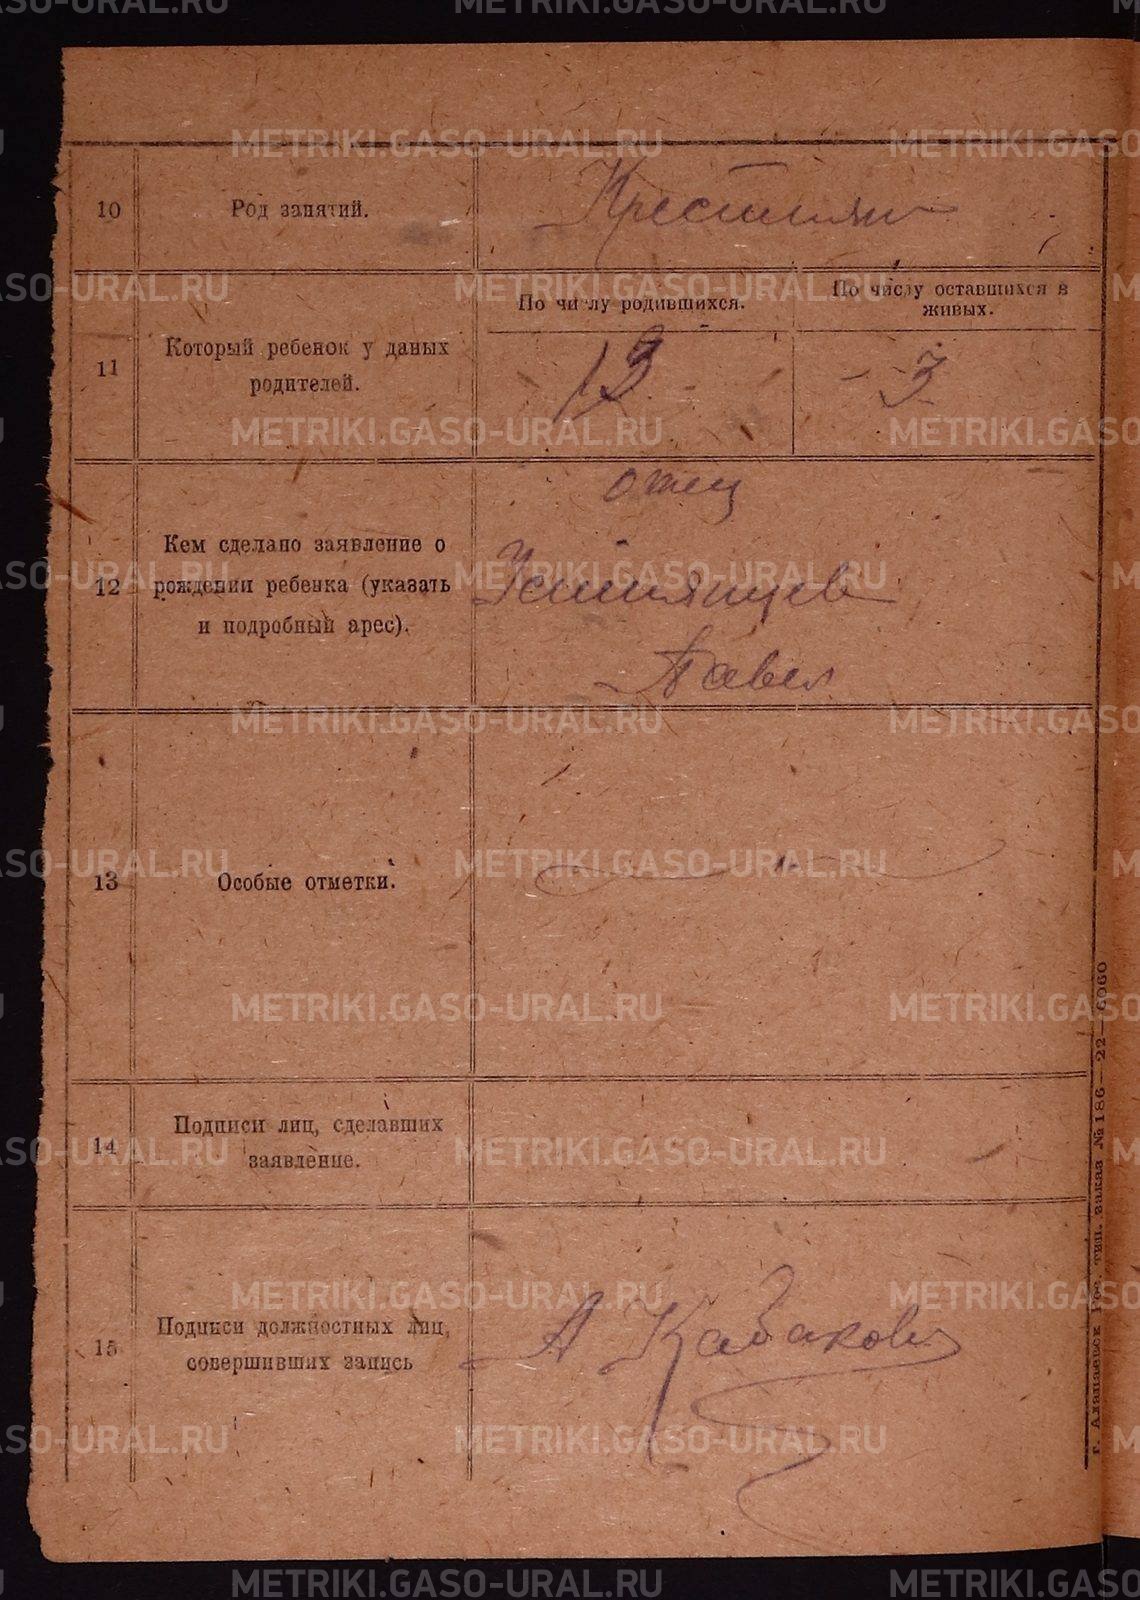 METRIKI.GASO-URAL.RU
10
Род занятий.
Крестьян
11
Который ребенок у даных
родителей.
По числу родившихся.
По числу оставшихся в
живых.
13
3
12
Кем сделано заявление о
рождении ребенка (указать
и подробный арес).
отец
Устьянцев
Павел
13
Особые отметки.
14
Подписи лиц, сделавших
заявление.
15
Подписи должностных лиц,
совершивших запись
А Кабаков
г. Алапаевск Гос. тип. заказ № 186—22—6060